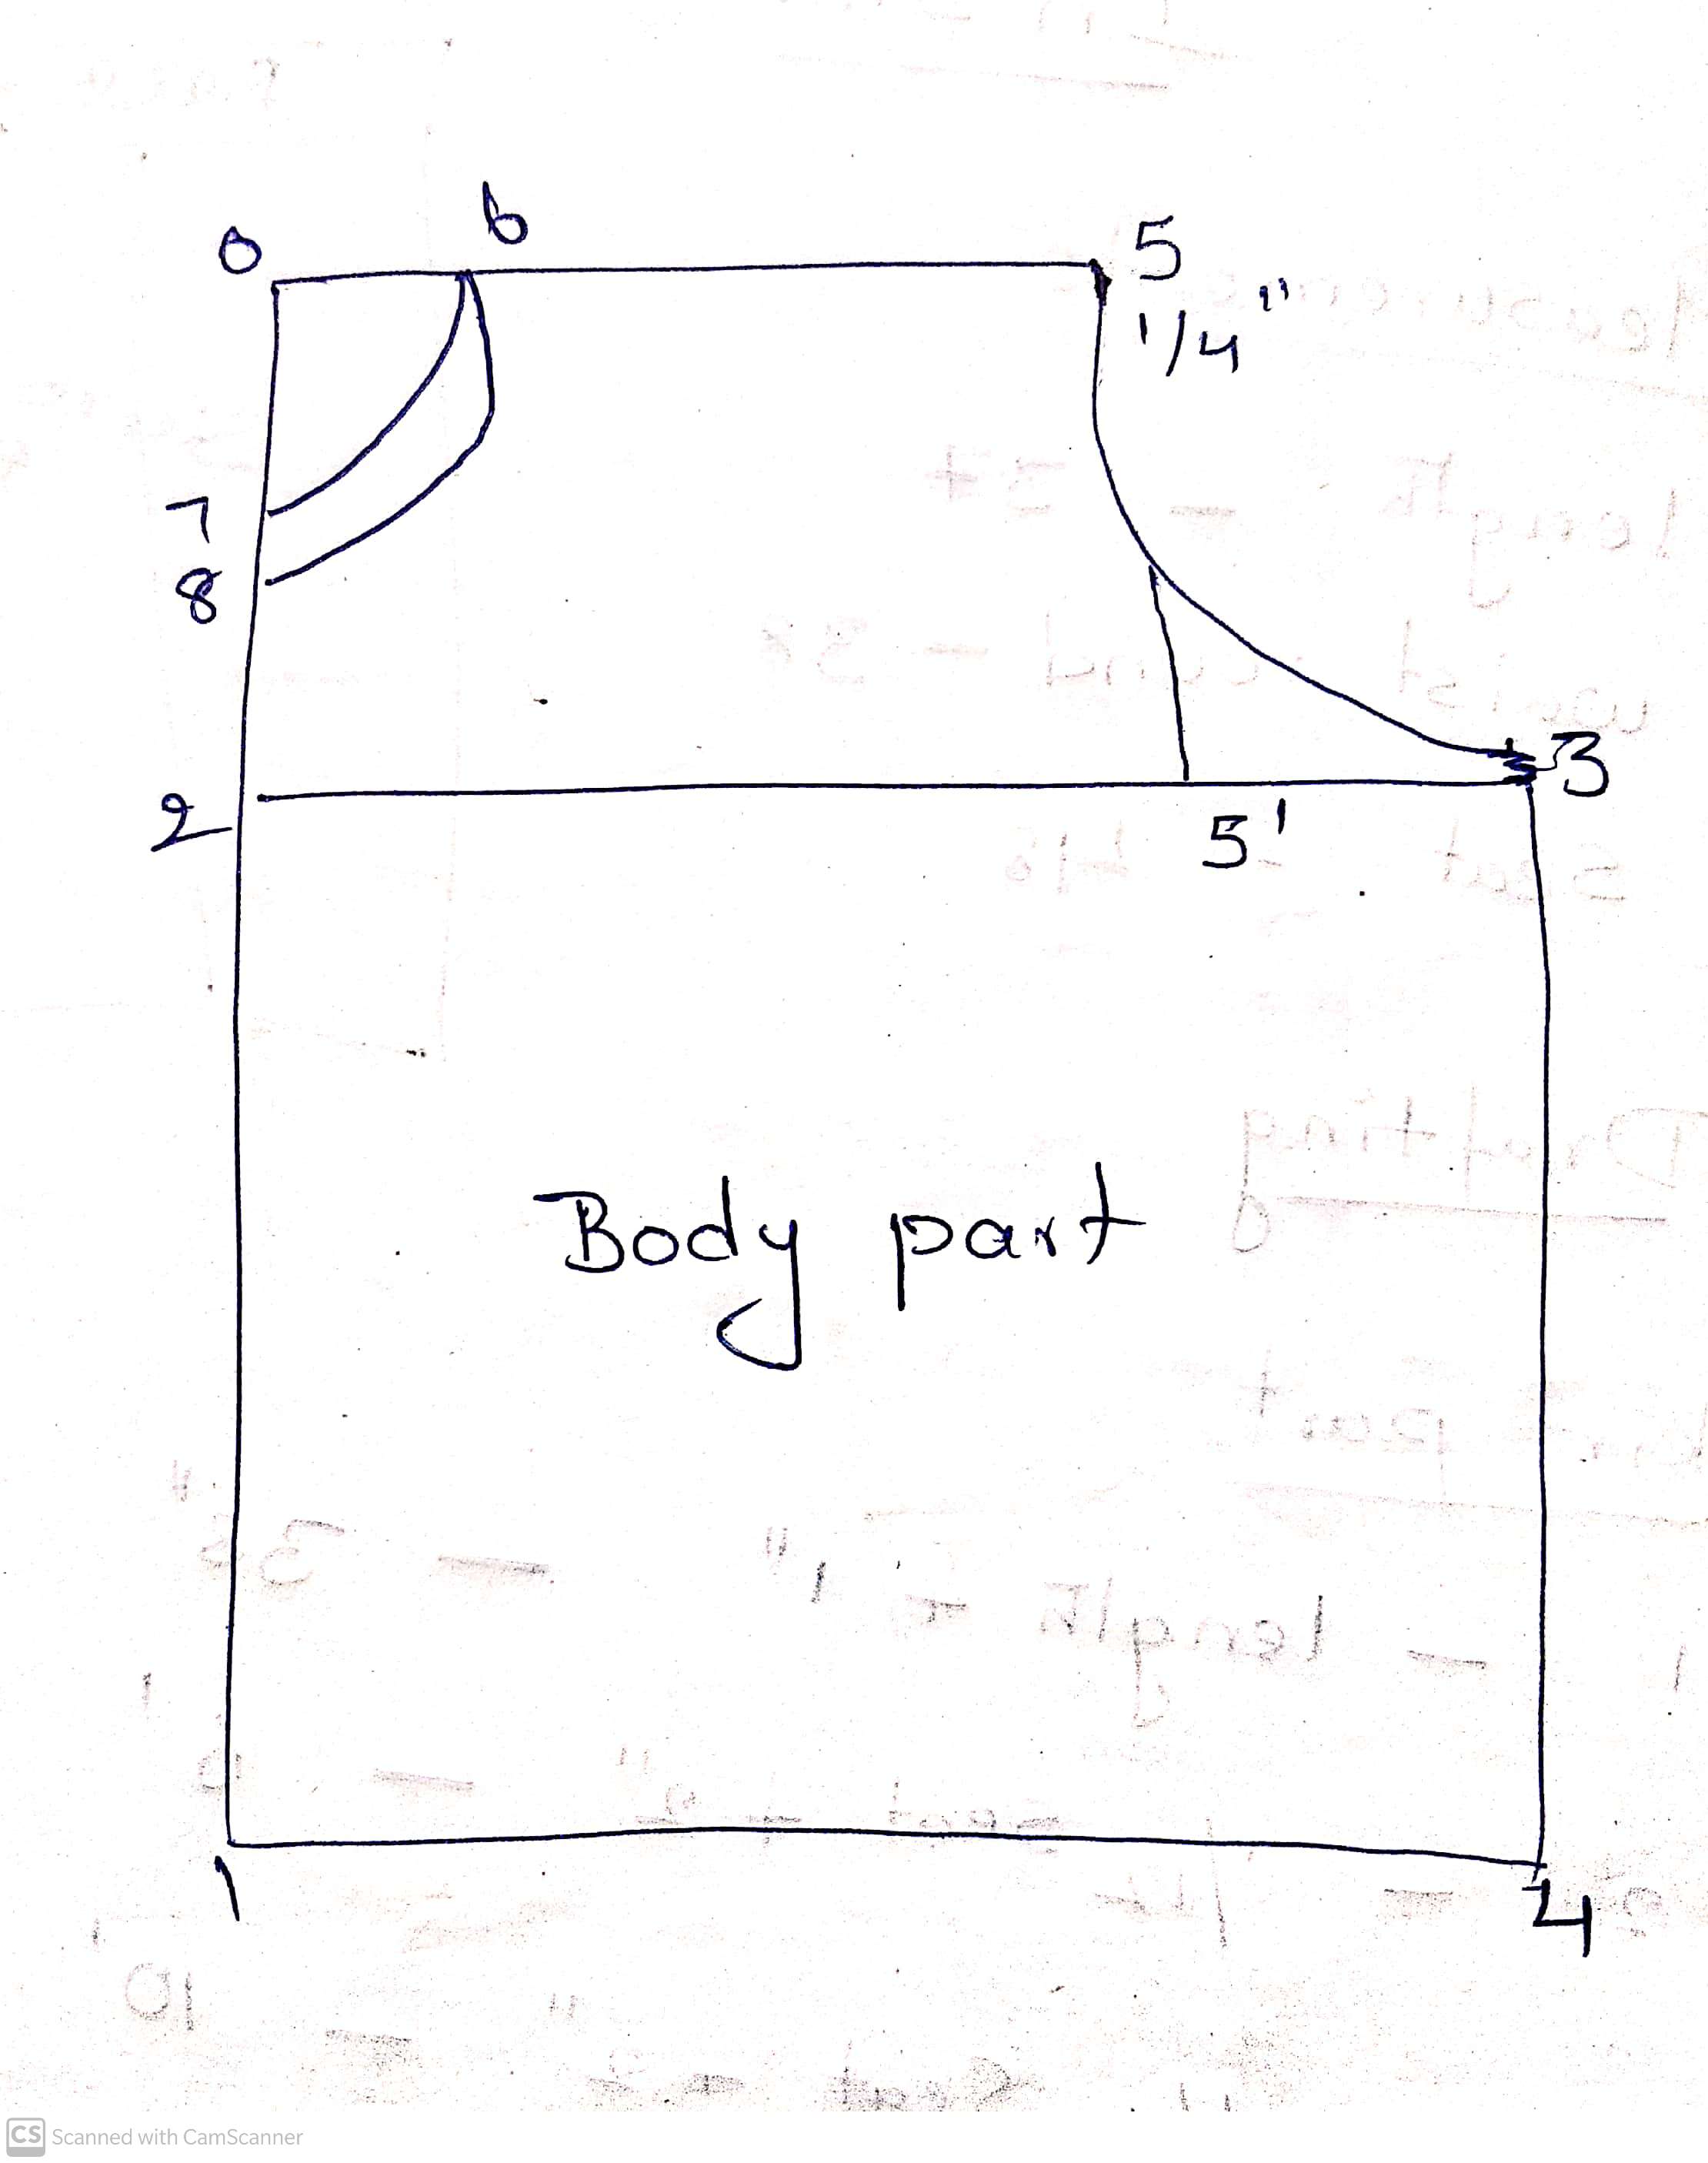 0 6 5
1/4"
7
8
3
2
5'
Body part
1
4
CS Scanned with CamScanner